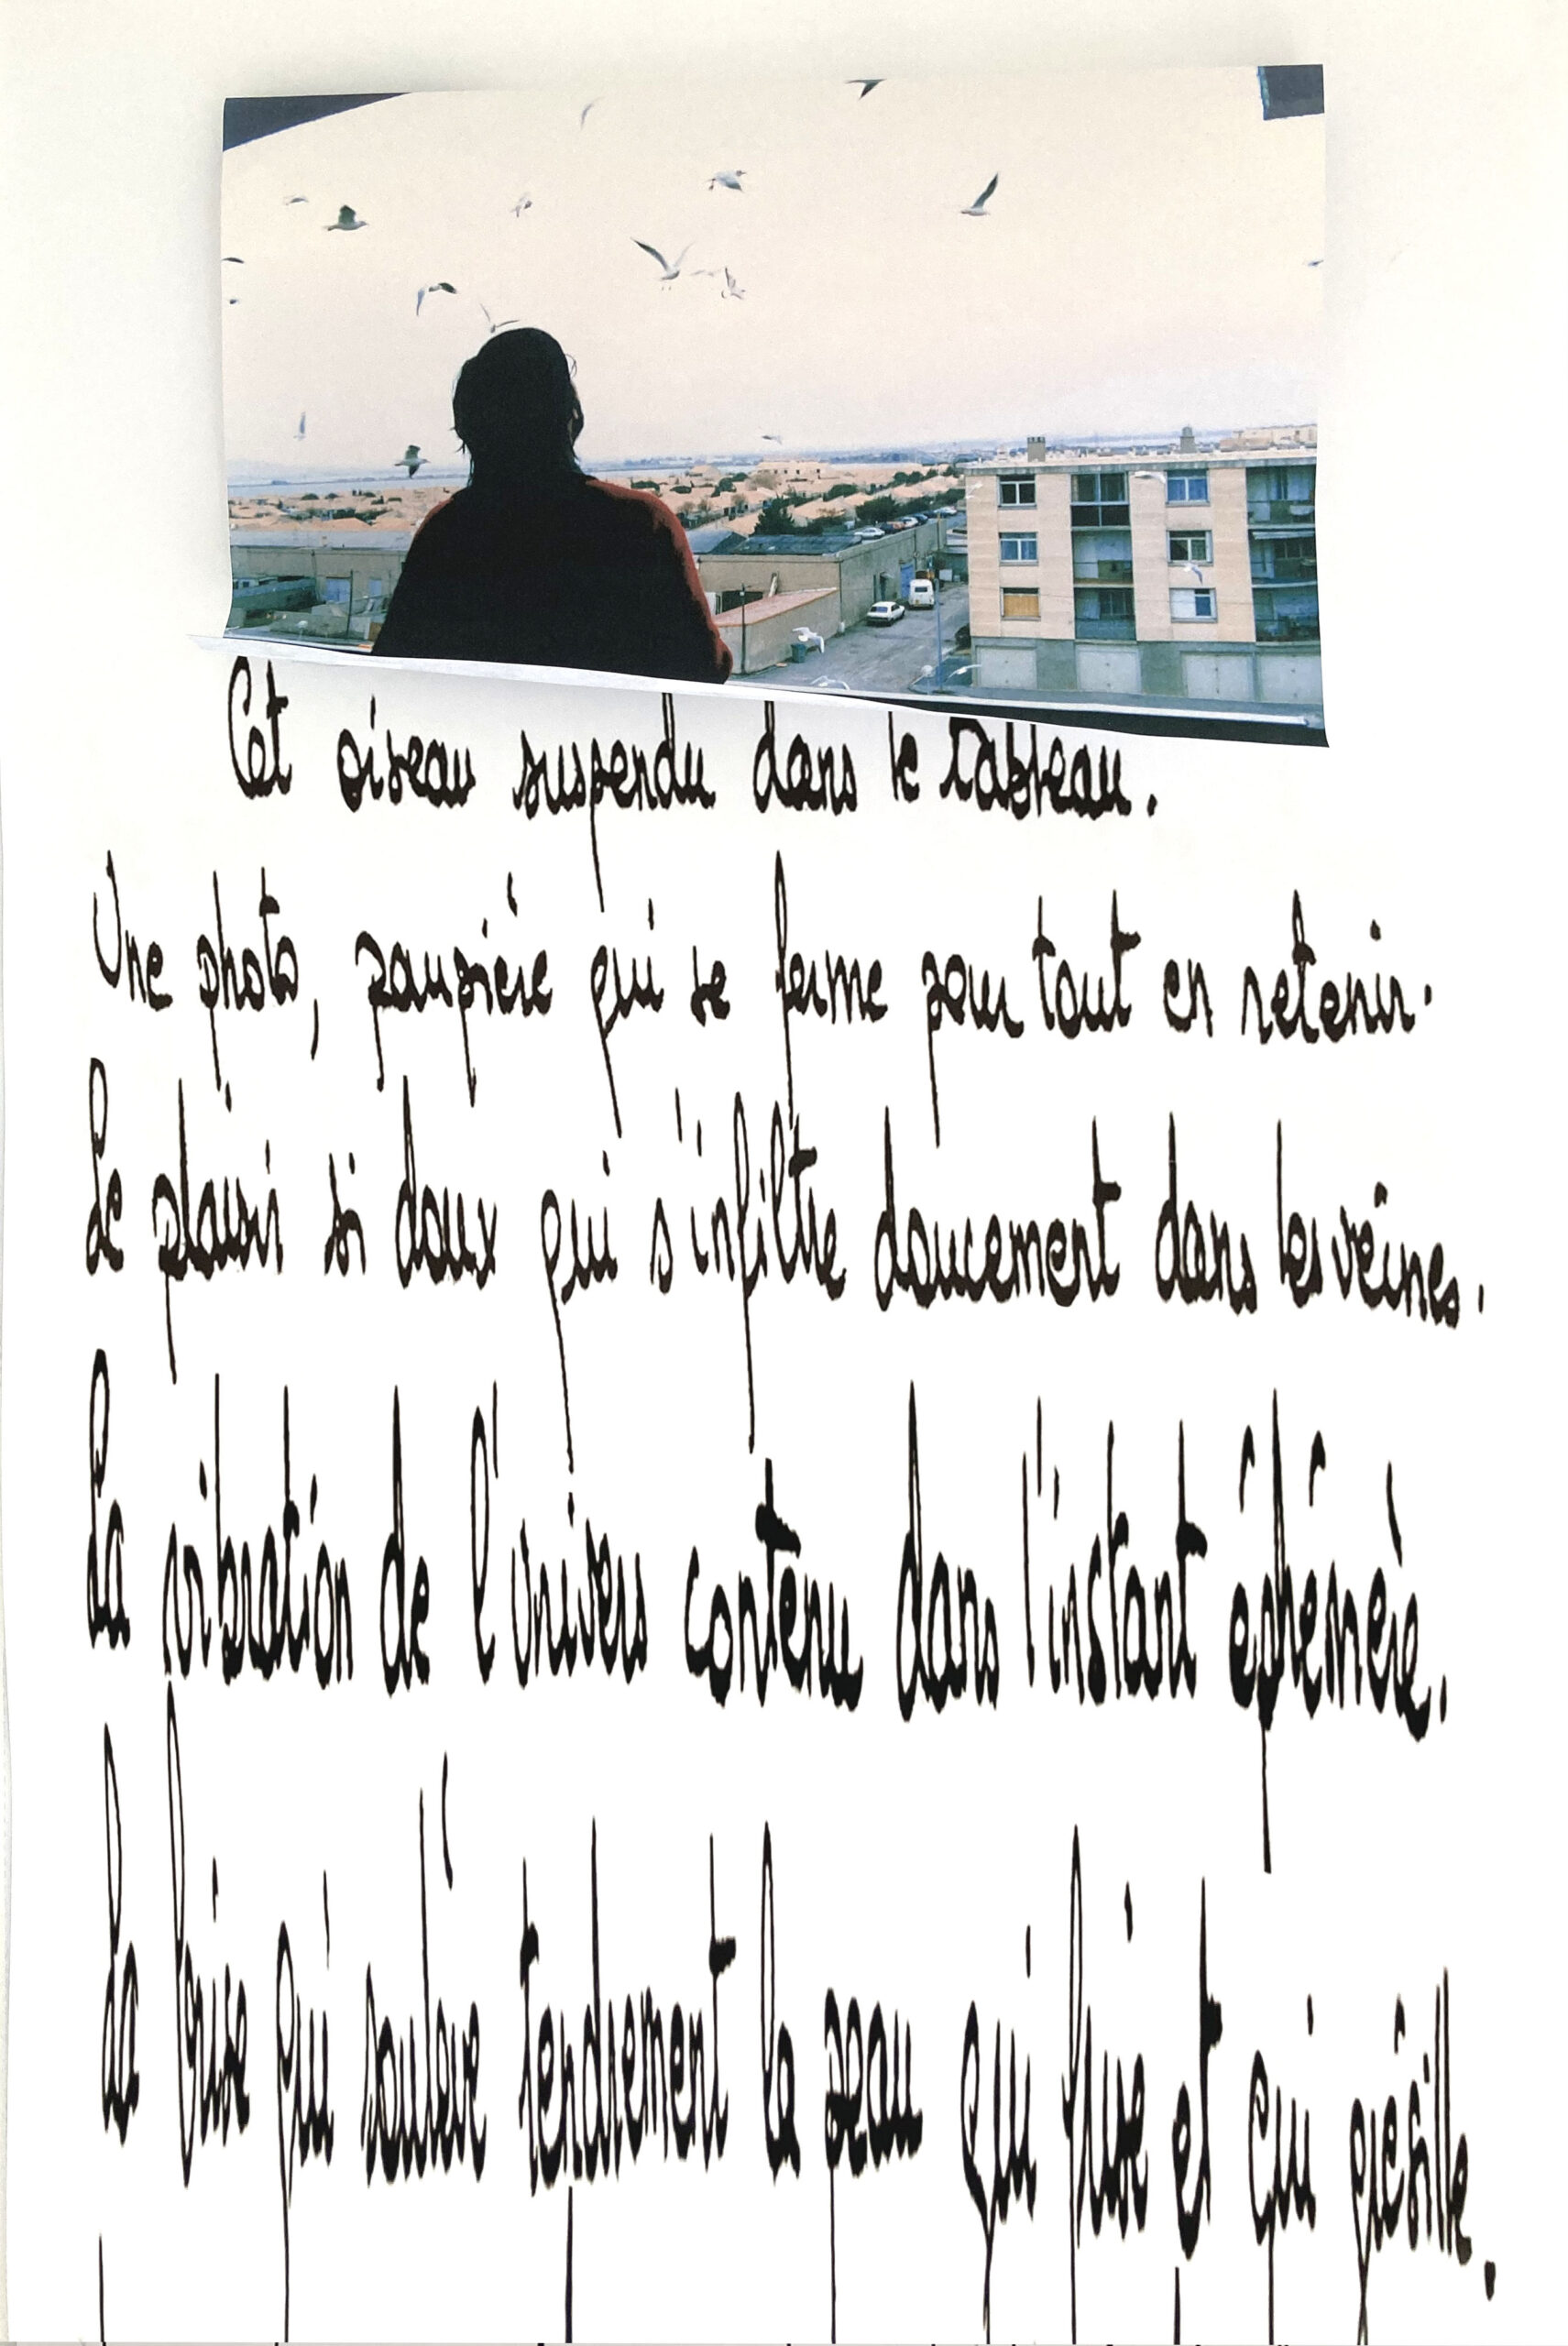 Cet oiseau suspendu dans le tableau.
Une photo, paupière qui se ferme pour tout en retenir.
Le plaisir si doux qui s'infiltre doucement dans les veines.
La vibration de l'univers contenu dans l'instant éphémère.
La brise qui soulève tendrement la peau qui frise et qui grésille.